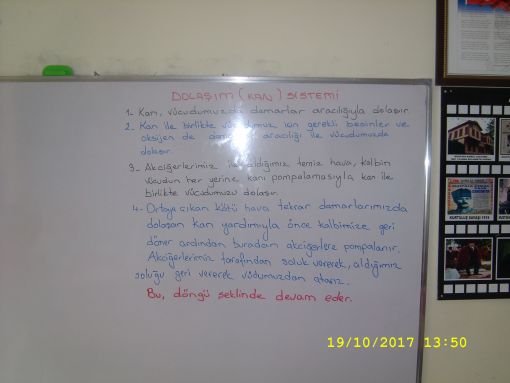 DOLAŞIM (KAN) SİSTEMİ
1- Kan, vücudumuzda damarlar aracılığıyla dolaşır.
2- Kan ile birlikte vücudumuz için gerekli besinler ve
oksijen de damarlar aracılığı ile vücudumuzda
dolaşır.
3- Akciğerlerimiz ile aldığımız temiz hava, kalbin
vücudun her yerine kanı pompalamasıyla kan ile
birlikte vücudumuzu dolaşır.
4- Ortaya çıkan kötü hava tekrar damarlarımızda
dolaşan kan yardımıyla önce kalbimize geri
döner ardından buradan akciğerlere pompalanır.
Akciğerlerimiz tarafından soluk vererek, aldığımız
soluğu geri vererek vücudumuzdan atarız.
Bu, döngü şeklinde devam eder.
KURTULUŞ SAVAŞI
19/10/2017 13:50